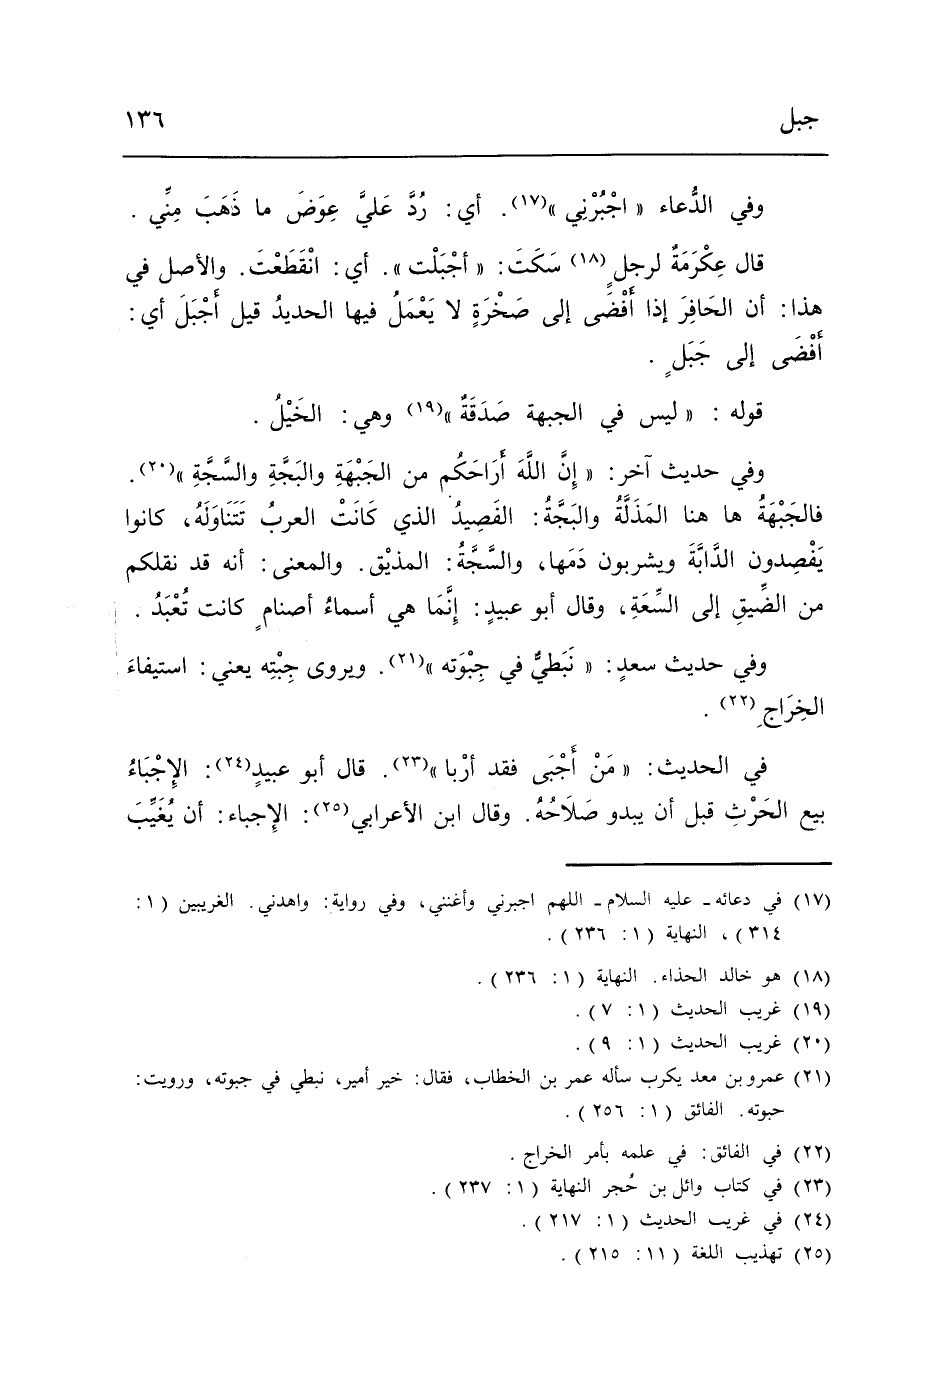 جبل
١٣٦
وفي الدُّعاء « اجْبُرْنِي »(١٧). أي: رُدَّ عَليَّ عِوَضَ ما ذَهَبَ مِنِّي .
قال عِكْرَمَةٌ لرجلٍ(١٨) سَكَتَ: « أجْبَلْت ». أي: انْقَطَعْتَ. والأصل في
هذا: أن الحَافِرَ إذا أَفْضَى إلى صَخْرَةٍ لا يَعْمَلُ فيها الحديدُ قيل أَجْبَلَ أي:
أَفْضَى إلى جَبَلٍ .
قوله : « ليس في الجبهة صَدَقَةٌ »(١٩) وهي: الخَيْلُ .
وفي حديث آخر: « إِنَّ اللَّهَ أَرَاحَكُم من الجَبْهَةِ والبَجَّةِ والسَّجَّةِ »(٢٠).
فالجَبْهَةُ ها هنا المَذَلَّةُ والبَجَّةُ: الفَصِيدُ الذي كَانَتْ العربُ تَتَنَاوَلَهُ، كانوا
يَفْصِدون الدَّابَّةَ ويشربون دَمَها، والسَّجَّةُ: المذيْق. والمعنى: أنه قد نقلكم
من الضِّيقِ إلى السِّعَةِ، وقال أبو عبيدٍ: إِنَّمَا هي أسماءُ أصنامٍ كانت تُعْبَدُ .
وفي حديث سعدٍ: « نَبَطيٌّ في جِبْوَته »(٢١). ويروى جِبْتِه يعني: استيفاءَ
الخِرَاجِ(٢٢) .
في الحديث: « مَنْ أَجْبَى فقد أرْبا »(٢٣). قال أبو عبيدٍ(٢٤): الإِجْبَاءُ
بيع الحَرْثِ قبل أن يبدو صَلَاحُهُ. وقال ابن الأعرابي(٢٥): الإجباء: أن يُغَيِّبَ
(١٧) في دعائه ـ عليه السلام ـ اللهم اجبرني وأغنني، وفي رواية: واهدني. الغريبين (١:
٣١٤)، النهاية (١: ٢٣٦).
(١٨) هو خالد الحذاء. النهاية (١: ٢٣٦).
(١٩) غريب الحديث (١: ٧).
(٢٠) غريب الحديث (١: ٩).
(٢١) عمرو بن معد يكرب سأله عمر بن الخطاب، فقال: خير أمير، نبطي في جبوته، ورويت:
حبوته. الفائق (١: ٢٥٦).
(٢٢) في الفائق: في علمه بأمر الخراج .
(٢٣) في كتاب وائل بن حُجر النهاية (١: ٢٣٧).
(٢٤) في غريب الحديث (١: ٢١٧).
(٢٥) تهذيب اللغة (١١: ٢١٥).